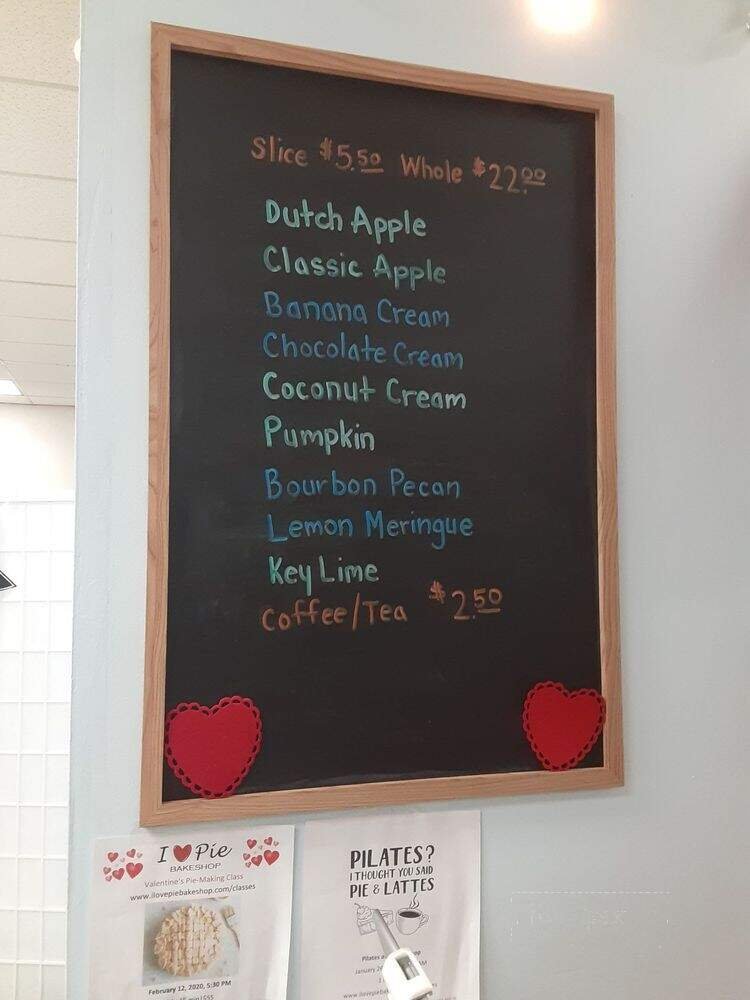 Slice $5.50 Whole $22.00
Dutch Apple
Classic Apple
Banana Cream
Chocolate Cream
Coconut Cream
Pumpkin
Bourbon Pecan
Lemon Meringue
Key Lime
Coffee/Tea $2.50
I Pie
BAKESHOP
Valentine's Pie-Making Class
www.ilovepiebakeshop.com/classes
February 12, 2020, 5:30 PM
PILATES?
I THOUGHT YOU SAID
PIE & LATTES
Pilates
January
www.ilovepiebak